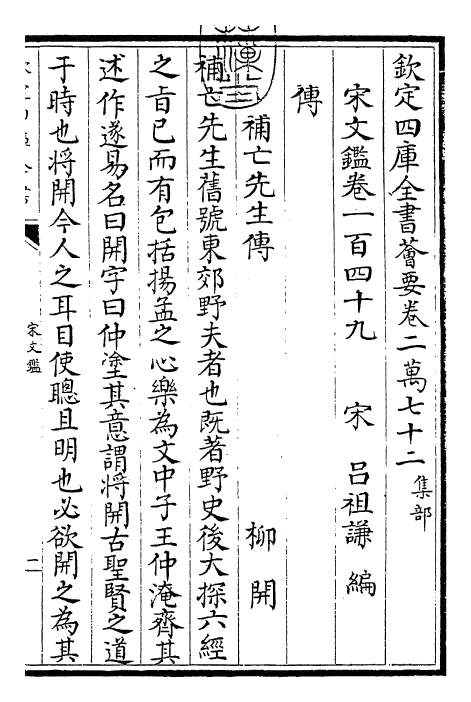 欽定四庫全書薈要卷二萬七十二 集部
宋文鑑卷一百四十九 宋 呂祖謙 編
傳
補亡先生傳 柳開
補亡先生舊號東郊野夫者也既著野史後大探六經
之旨已而有包括揚孟之心樂為文中子王仲淹齊其
述作遂易名曰開字曰仲塗其意謂將開古聖賢之道
于時也将開今人之耳目使聰且明也必欲開之為其
宋文鑑